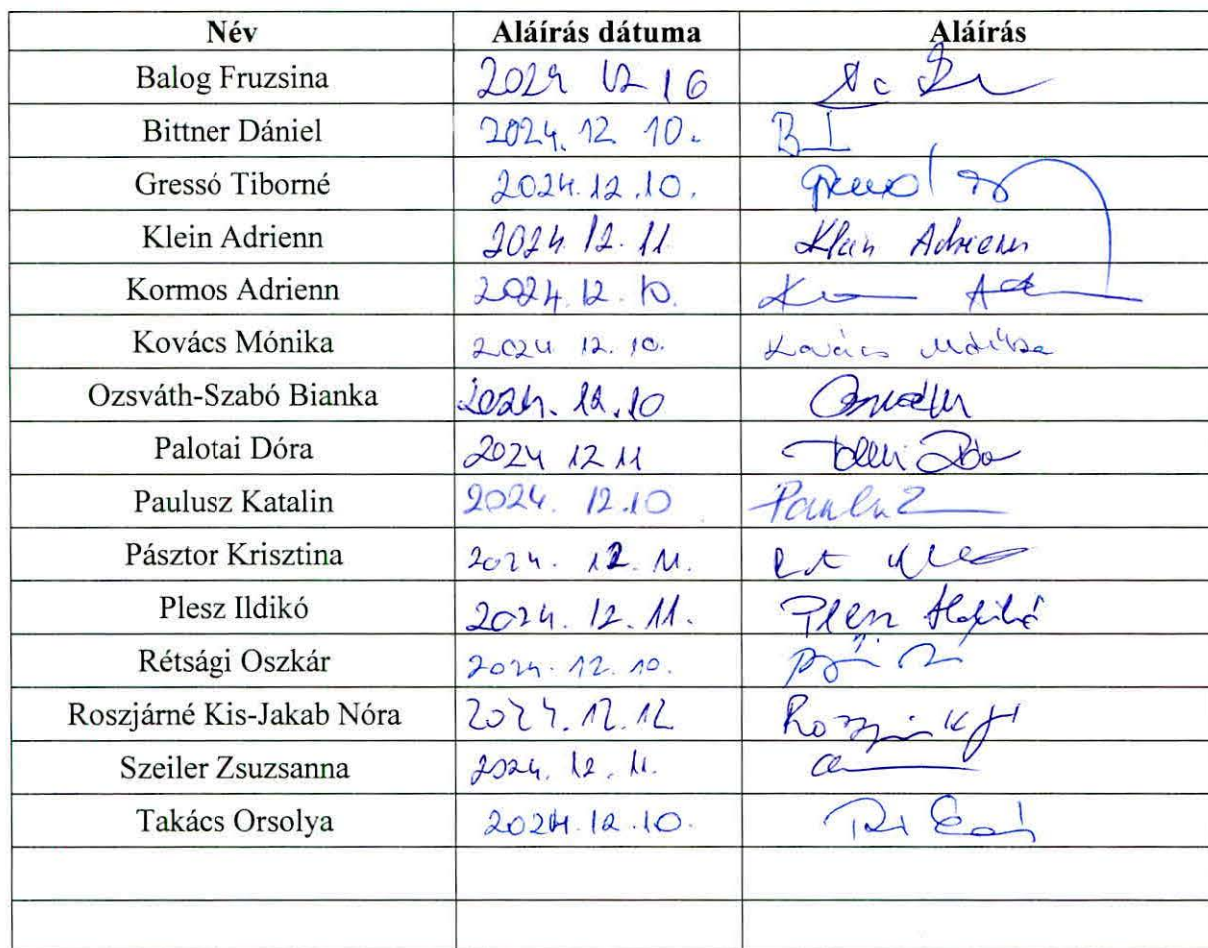 Név Aláírás dátuma Aláírás
Balog Fruzsina 2024 12 16
Bittner Dániel 2024. 12 10.
Gressó Tiborné 2024.12.10.
Klein Adrienn 2024 12. 11 Klein Adrienn
Kormos Adrienn 2024.12.10.
Kovács Mónika 2024 12. 10. Kovács Mónika
Ozsváth-Szabó Bianka 2024. 12.10
Palotai Dóra 2024 12 11
Paulusz Katalin 2024. 12.10
Pásztor Krisztina 2024. 12. 11.
Plesz Ildikó 2024. 12. 11. Plesz Ildikó
Rétsági Oszkár 2024. 12. 10.
Roszjárné Kis-Jakab Nóra 2024.12.12
Szeiler Zsuzsanna 2024. 12. 11.
Takács Orsolya 2024.12.10.